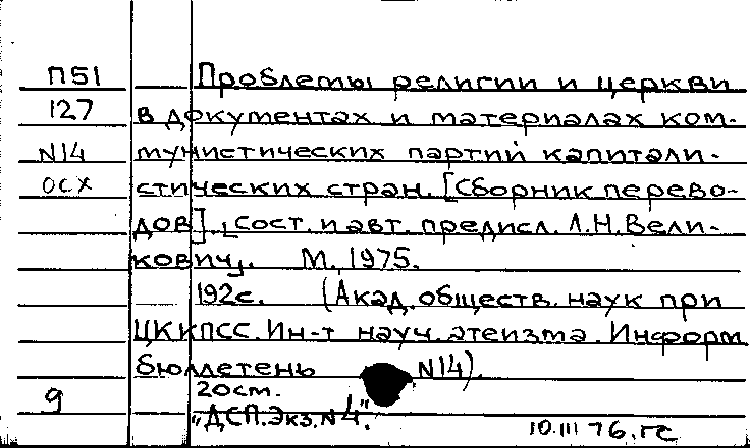 П51 Проблемы религии и церкви
127 в документах и материалах ком-
N14 мунистических партий капитали-
ОСХ стических стран. [Сборник перево-
дов]. [Сост. и авт. предисл. Л.Н. Вели-
кович]. М., 1975.
192с. (Акад. обществ. наук при
ЦК КПСС. Ин-т науч. атеизма. Информ
бюллетень N14).
20см.
9 "ДСП. Экз. N 4".
10.III 76. гс